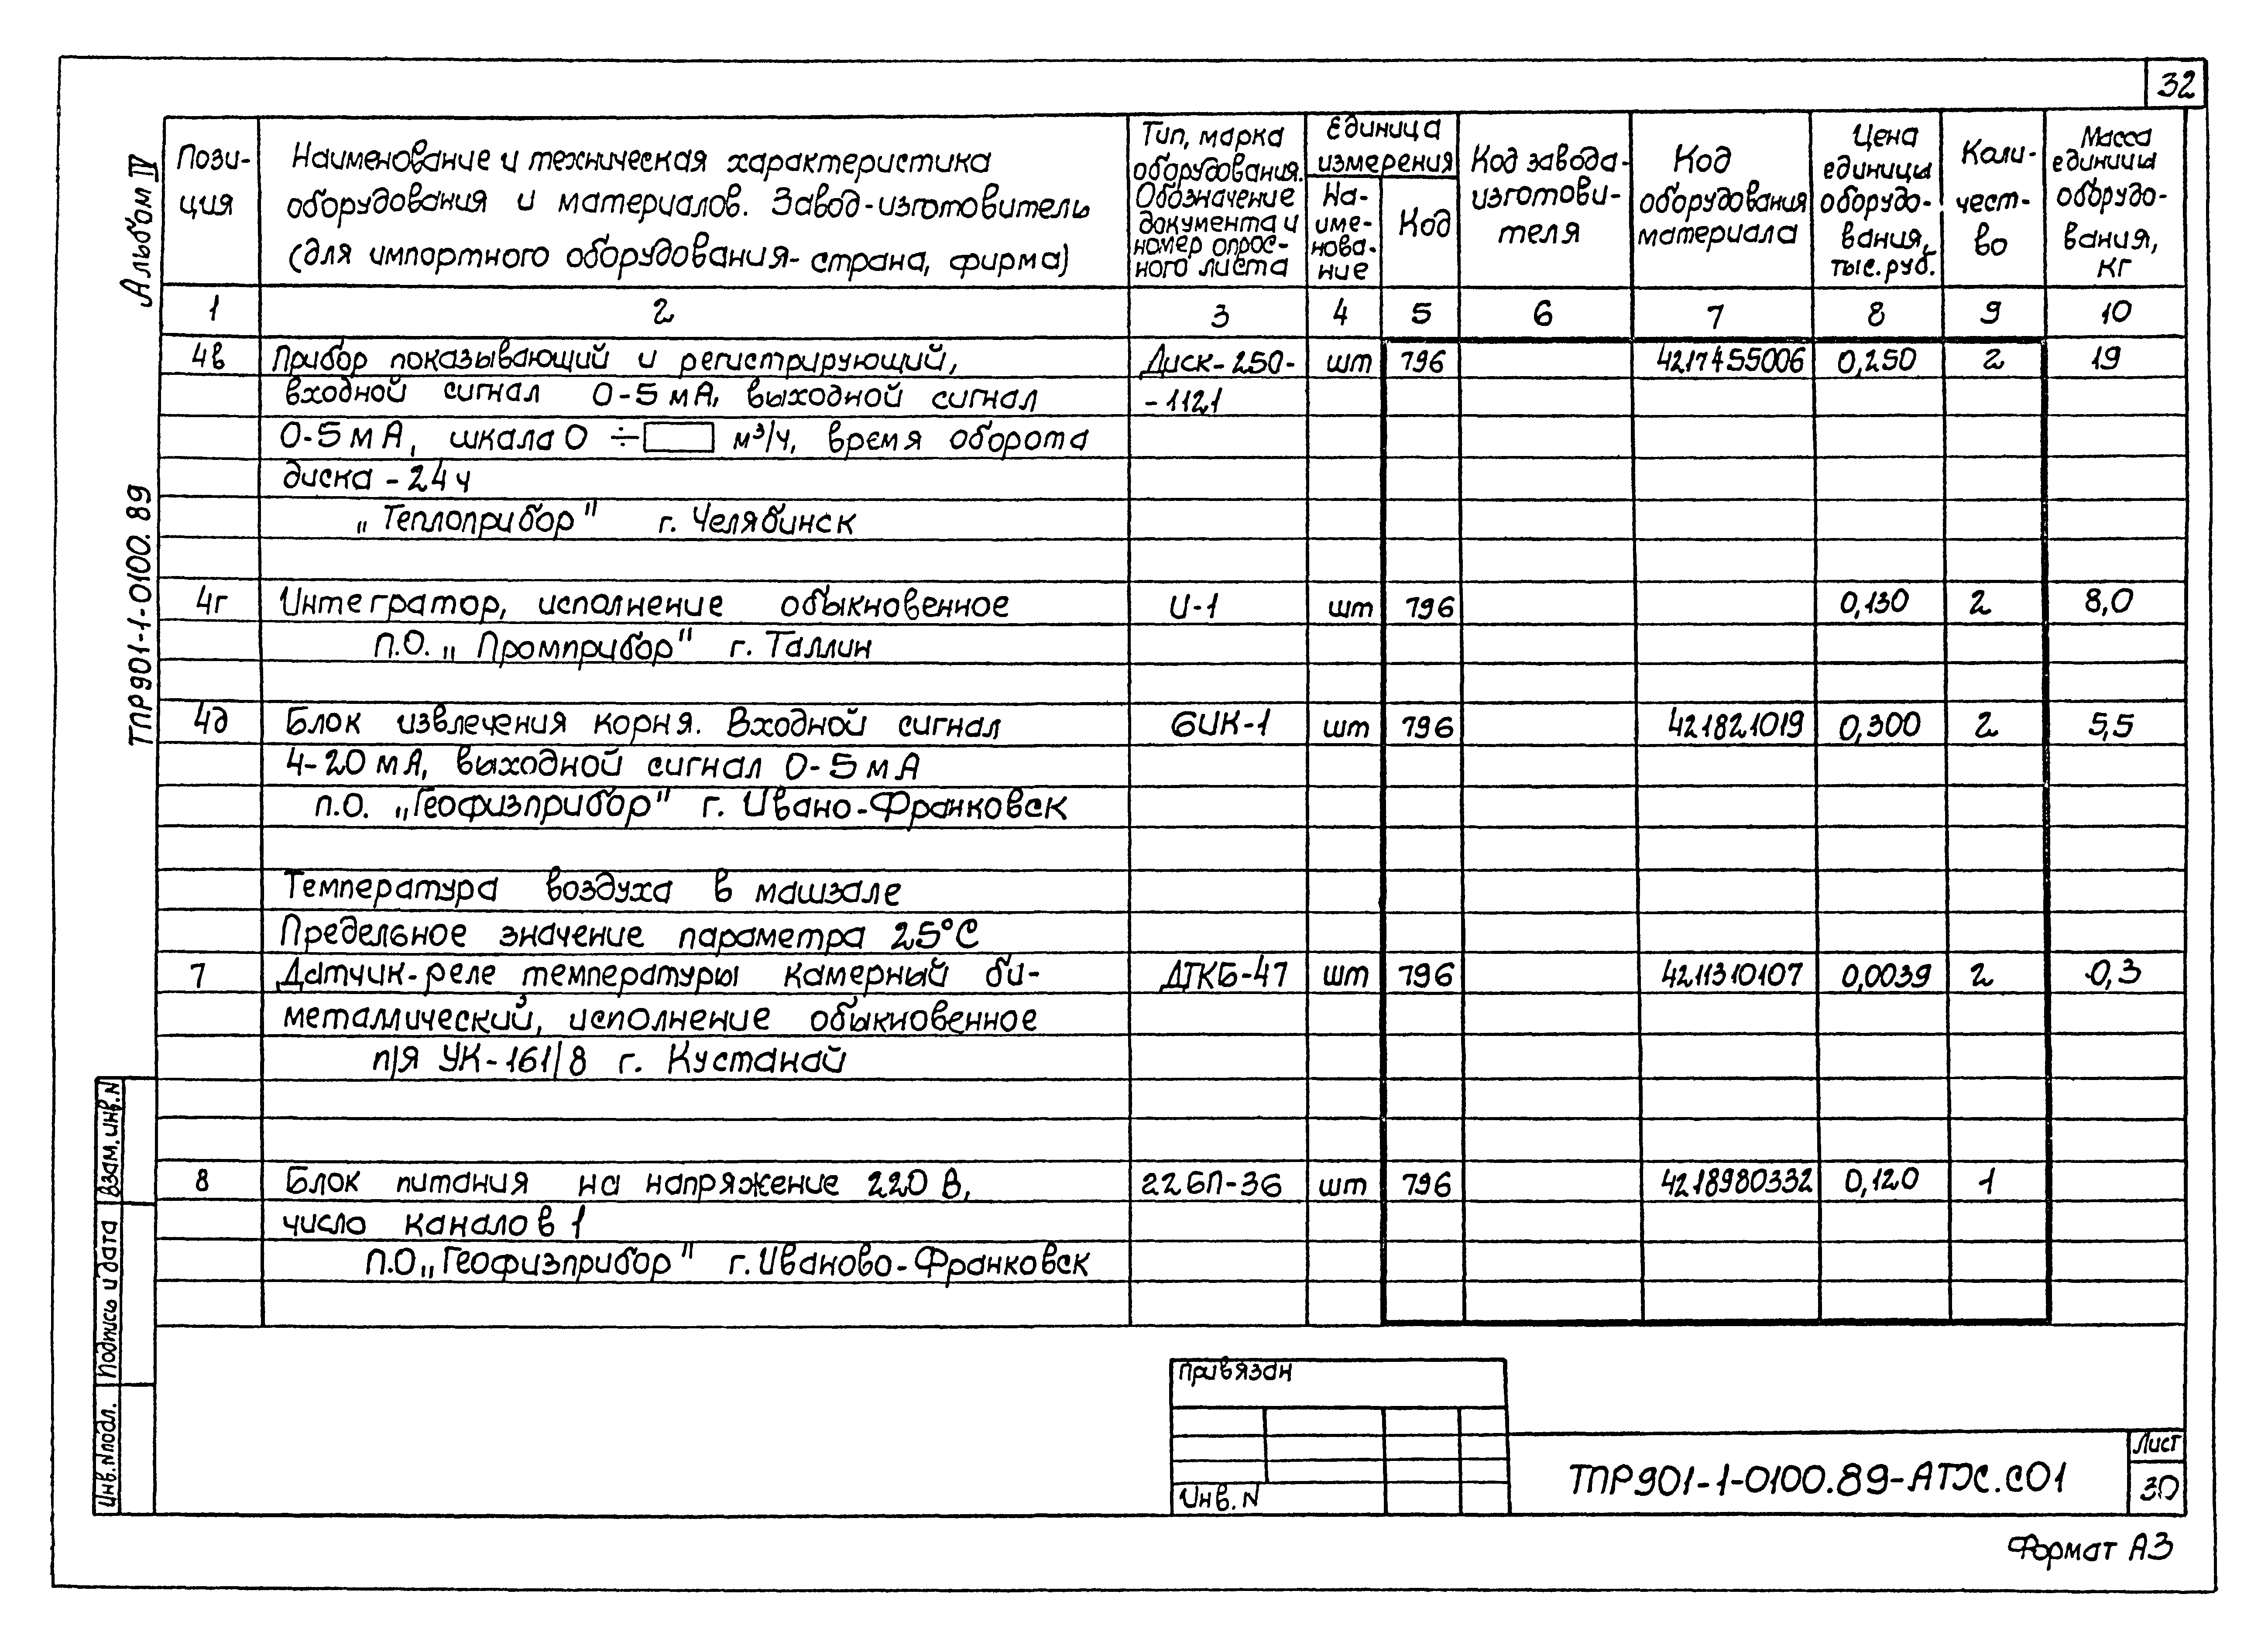 32
Альбом IV
ТПР901-1-0100.89
Пози-
ция
Наименование и техническая характеристика
оборудования и материалов. Завод-изготовитель
(для импортного оборудования- страна, фирма)
Тип, марка
оборудования.
Обозначение
документа и
номер опрос-
ного листа
Единица
измерения
На-
име-
нова-
ние
Код
Код завода-
изготови-
теля
Код
оборудования
материала
Цена
единицы
оборудо-
вания,
тыс.руб.
Коли-
чест-
во
Масса
единицы
оборудо-
вания,
кг
1 2 3 4 5 6 7 8 9 10
4в Прибор показывающий и регистрирующий, Диск-250- шт 796 4217455006 0,250 2 19
входной сигнал 0-5мА, выходной сигнал -1121
0-5мА, шкала 0 ÷ м³/ч, время оборота
диска - 24ч
„Теплоприбор" г. Челябинск
4г Интегратор, исполнение обыкновенное И-1 шт 796 0,130 2 8,0
п.о. „Промприбор" г. Таллин
4д Блок извлечения корня. Входной сигнал БИК-1 шт 796 421821019 0,300 2 5,5
4-20мА, выходной сигнал 0-5мА
п.о. „Геофизприбор" г. Ивано-Франковск
Температура воздуха в машзале
Предельное значение параметра 25°С
7 Датчик-реле температуры камерный би- ДТКБ-47 шт 796 4211310107 0,0039 2 0,3
металлический, исполнение обыкновенное
п/я УК-161/8 г. Кустанай
8 Блок питания на напряжение 220 В, 22БП-36 шт 796 4218980332 0,120 1
число каналов 1
п.о „Геофизприбор" г.Иваново-Франковск
Взам.инв.N
Подпись и дата
Инв.Nподл.
Привязан
Инв.N
ТПР901-1-0100.89-АТХ.СО1
Лист
30
Формат А3